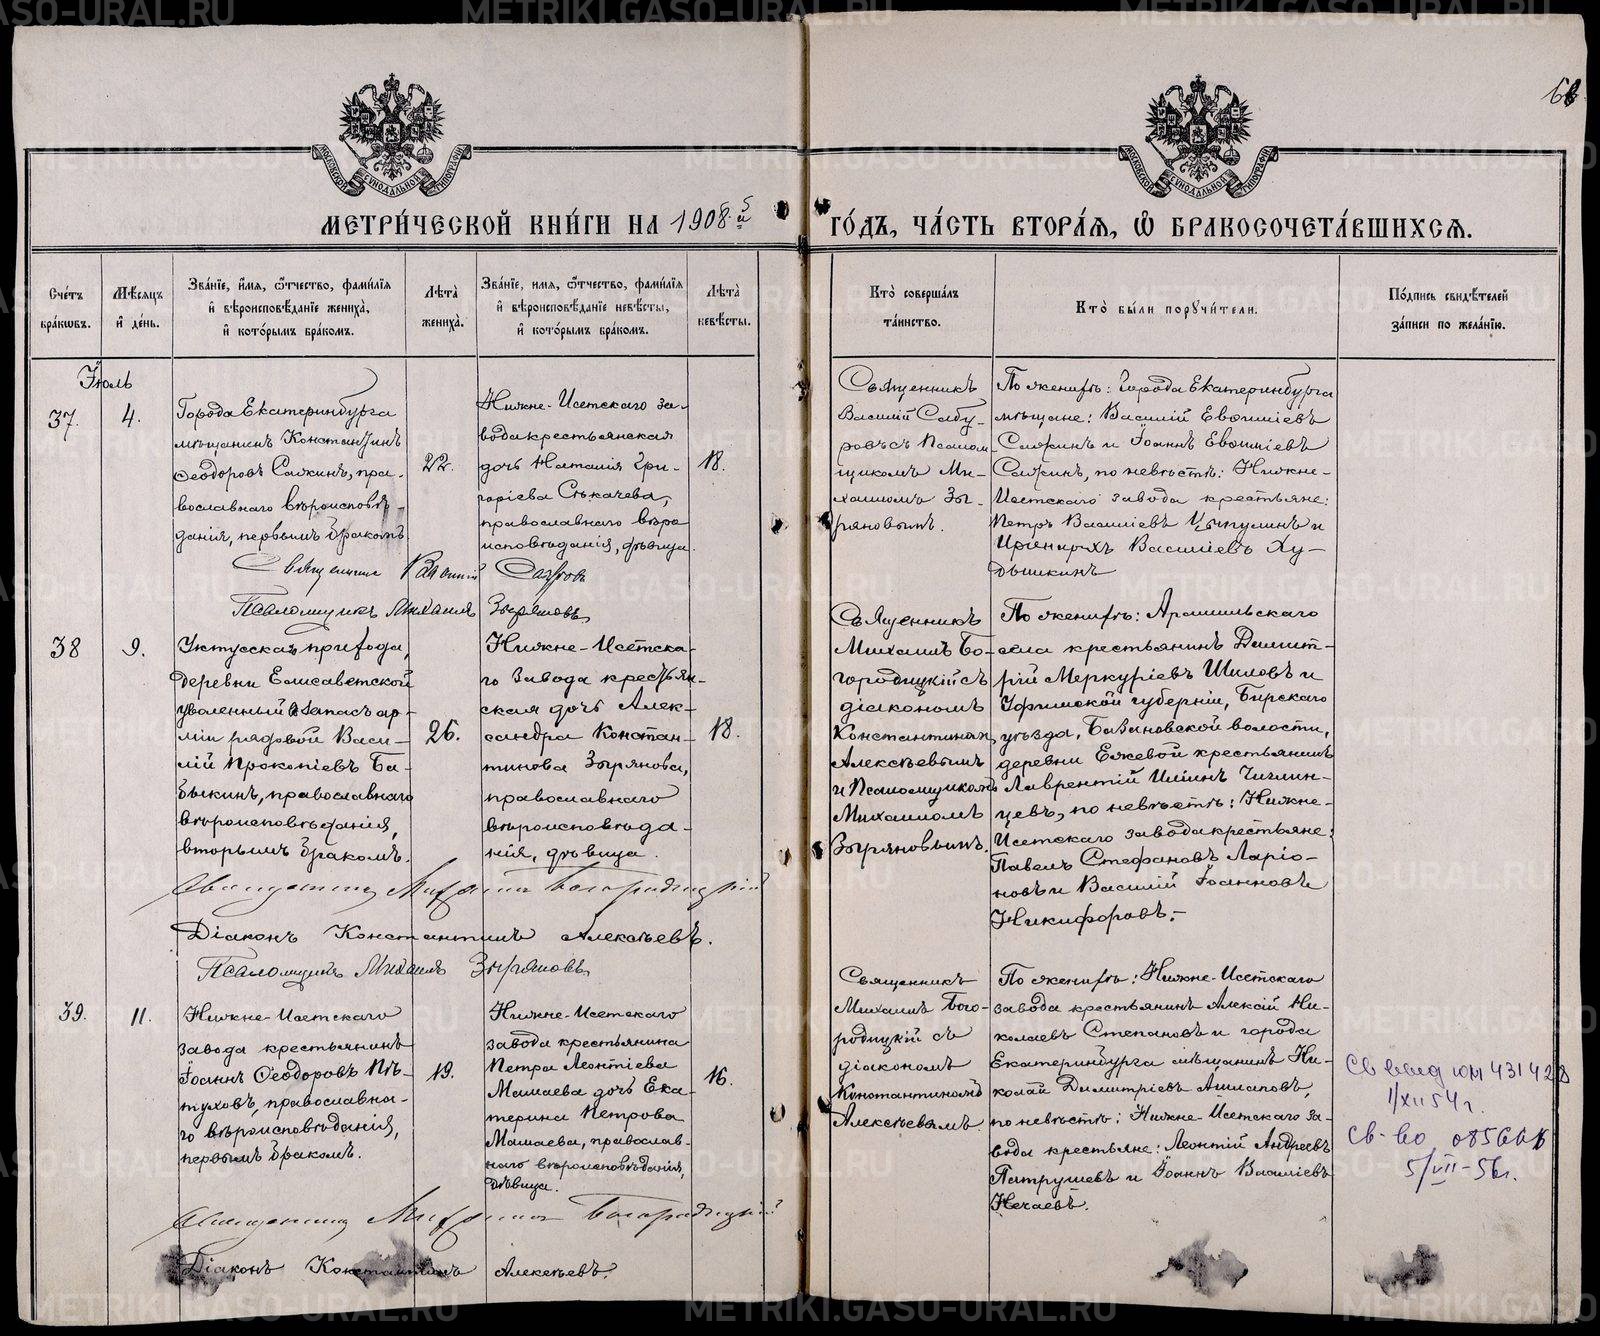 МЕТРИ́ЧЕСКОЙ КНИ́ГИ НА 1908 й
ГО́ДЪ, ЧА́СТЬ ВТОРА́Я, Ѡ БРАКОСОЧЕТА́ВШИХСЯ.
Сче́тъ бра́ковъ.
Мѣ́сяцъ и́ де́нь.
Зва́нїе, и́мя, ѻ҆́тчество, фами́лїя и҆ вѣроисповѣ́данїе жениха̀, и҆ кото́рымъ бра́комъ.
Лѣта̀ жениха̀.
Зва́нїе, имя, ѻ҆́тчество, фами́лїя и҆ вѣроисповѣ́данїе невѣ́сты, и҆ кото́рымъ бра́комъ.
Лѣта̀ невѣ́сты.
Кто̀ соверша́лъ та́инство.
Кто̀ бы́ли порꙋчи́тели.
По́дпись свидѣ́телей за́писи по жела́нїю.
Іюль
37.
4.
Города Екатеринбурга
мѣщанинъ Константинъ
Ѳеодоровъ Сажинъ, пра-
вославнаго вѣроисповѣ-
данія, первымъ бракомъ
22.
Нижне-Исетскаго за-
вода крестьянская
дочь Наталія Гри-
горіева Сѣкачева,
православнаго вѣро
исповѣданія, дѣвица.
18.
Священникъ
Василій Сабу-
ровъ съ Псалом
щикомъ Ми-
хаиломъ Зы-
ряновымъ.
По женихѣ: Города Екатеринбурга
мѣщане: Василій Евѳиміевъ
Сажинъ и Іоаннъ Евѳиміевъ
Сажинъ, по невѣстѣ: Нижне-
Исетскаго завода крестьяне:
Петръ Василіевъ Цыпулинъ и
Иринархъ Василіевъ Ху-
дышкинъ
Священникъ Василій Сабуровъ
Псаломщикъ Михаилъ Зыряновъ
38
9.
Уктусскаго прихода,
деревни Елисаветской
уволенный въ запасъ ар-
міи рядовой Васи-
лій Прокопіевъ Ба-
быкинъ, православнаго
вѣроисповѣданія,
вторымъ бракомъ.
26.
Нижне-Исетска-
го завода крестьян-
ская дочь Алек-
сандра Констан-
тинова Зырянова,
православнаго
вѣроисповѣда-
нія, дѣвица.
18.
Священникъ
Михаилъ Бо-
городицкій съ
діакономъ
Константиномъ
Алексѣевымъ
и Псаломщикомъ
Михаиломъ
Зыряновымъ.
По женихѣ: Арамильскаго
села крестьянинъ Димит-
рій Меркуріевъ Шиловъ и
Уфимской губерніи, Бирскаго
уѣзда, Ба ановской волости,
деревни Ежевой крестьянинъ
Лаврентій Иліинъ Чиглин-
цевъ, по невѣстѣ: Нижне-
Исетскаго завода крестьяне:
Павелъ Стефановъ Ларіо-
новъ и Василій Іоанновъ
Никифоровъ.-
Священникъ Михаилъ Богородицкій
Діаконъ Константинъ Алексѣевъ.
Псаломщикъ Михаилъ Зыряновъ
39.
11.
Нижне-Исетскаго
завода крестьянинъ
Іоаннъ Ѳеодоровъ Пѣ-
туховъ, православна-
го вѣроисповѣданія,
первымъ бракомъ.
19.
Нижне-Исетскаго
завода крестьянина
Петра Леонтіева
Мамаева дочь Ека-
терина Петрова
Мамаева, православ-
наго вѣроисповѣданія,
дѣвица.
16.
Священникъ
Михаилъ Бого-
родицкій съ
діакономъ
Константиномъ
Алексѣевымъ.
По женихѣ: Нижне-Исетскаго
завода крестьянинъ Алексій Ни-
колаевъ Степановъ и города
Екатеринбурга мѣщанинъ Ни-
колай Димитріевъ Ашлаповъ,
по невѣстѣ: Нижне-Исетскаго за-
вода крестьяне: Леонтій Андреевъ
Патрушевъ и Іоаннъ Василіевъ
Нечаевъ.
юм 431428
1/XII 54 г.
Св-во
5/VII-56г.
Священникъ Михаилъ Богородицкій
Діаконъ Константинъ Алексѣевъ.
METRIKI.GASO-URAL.RU